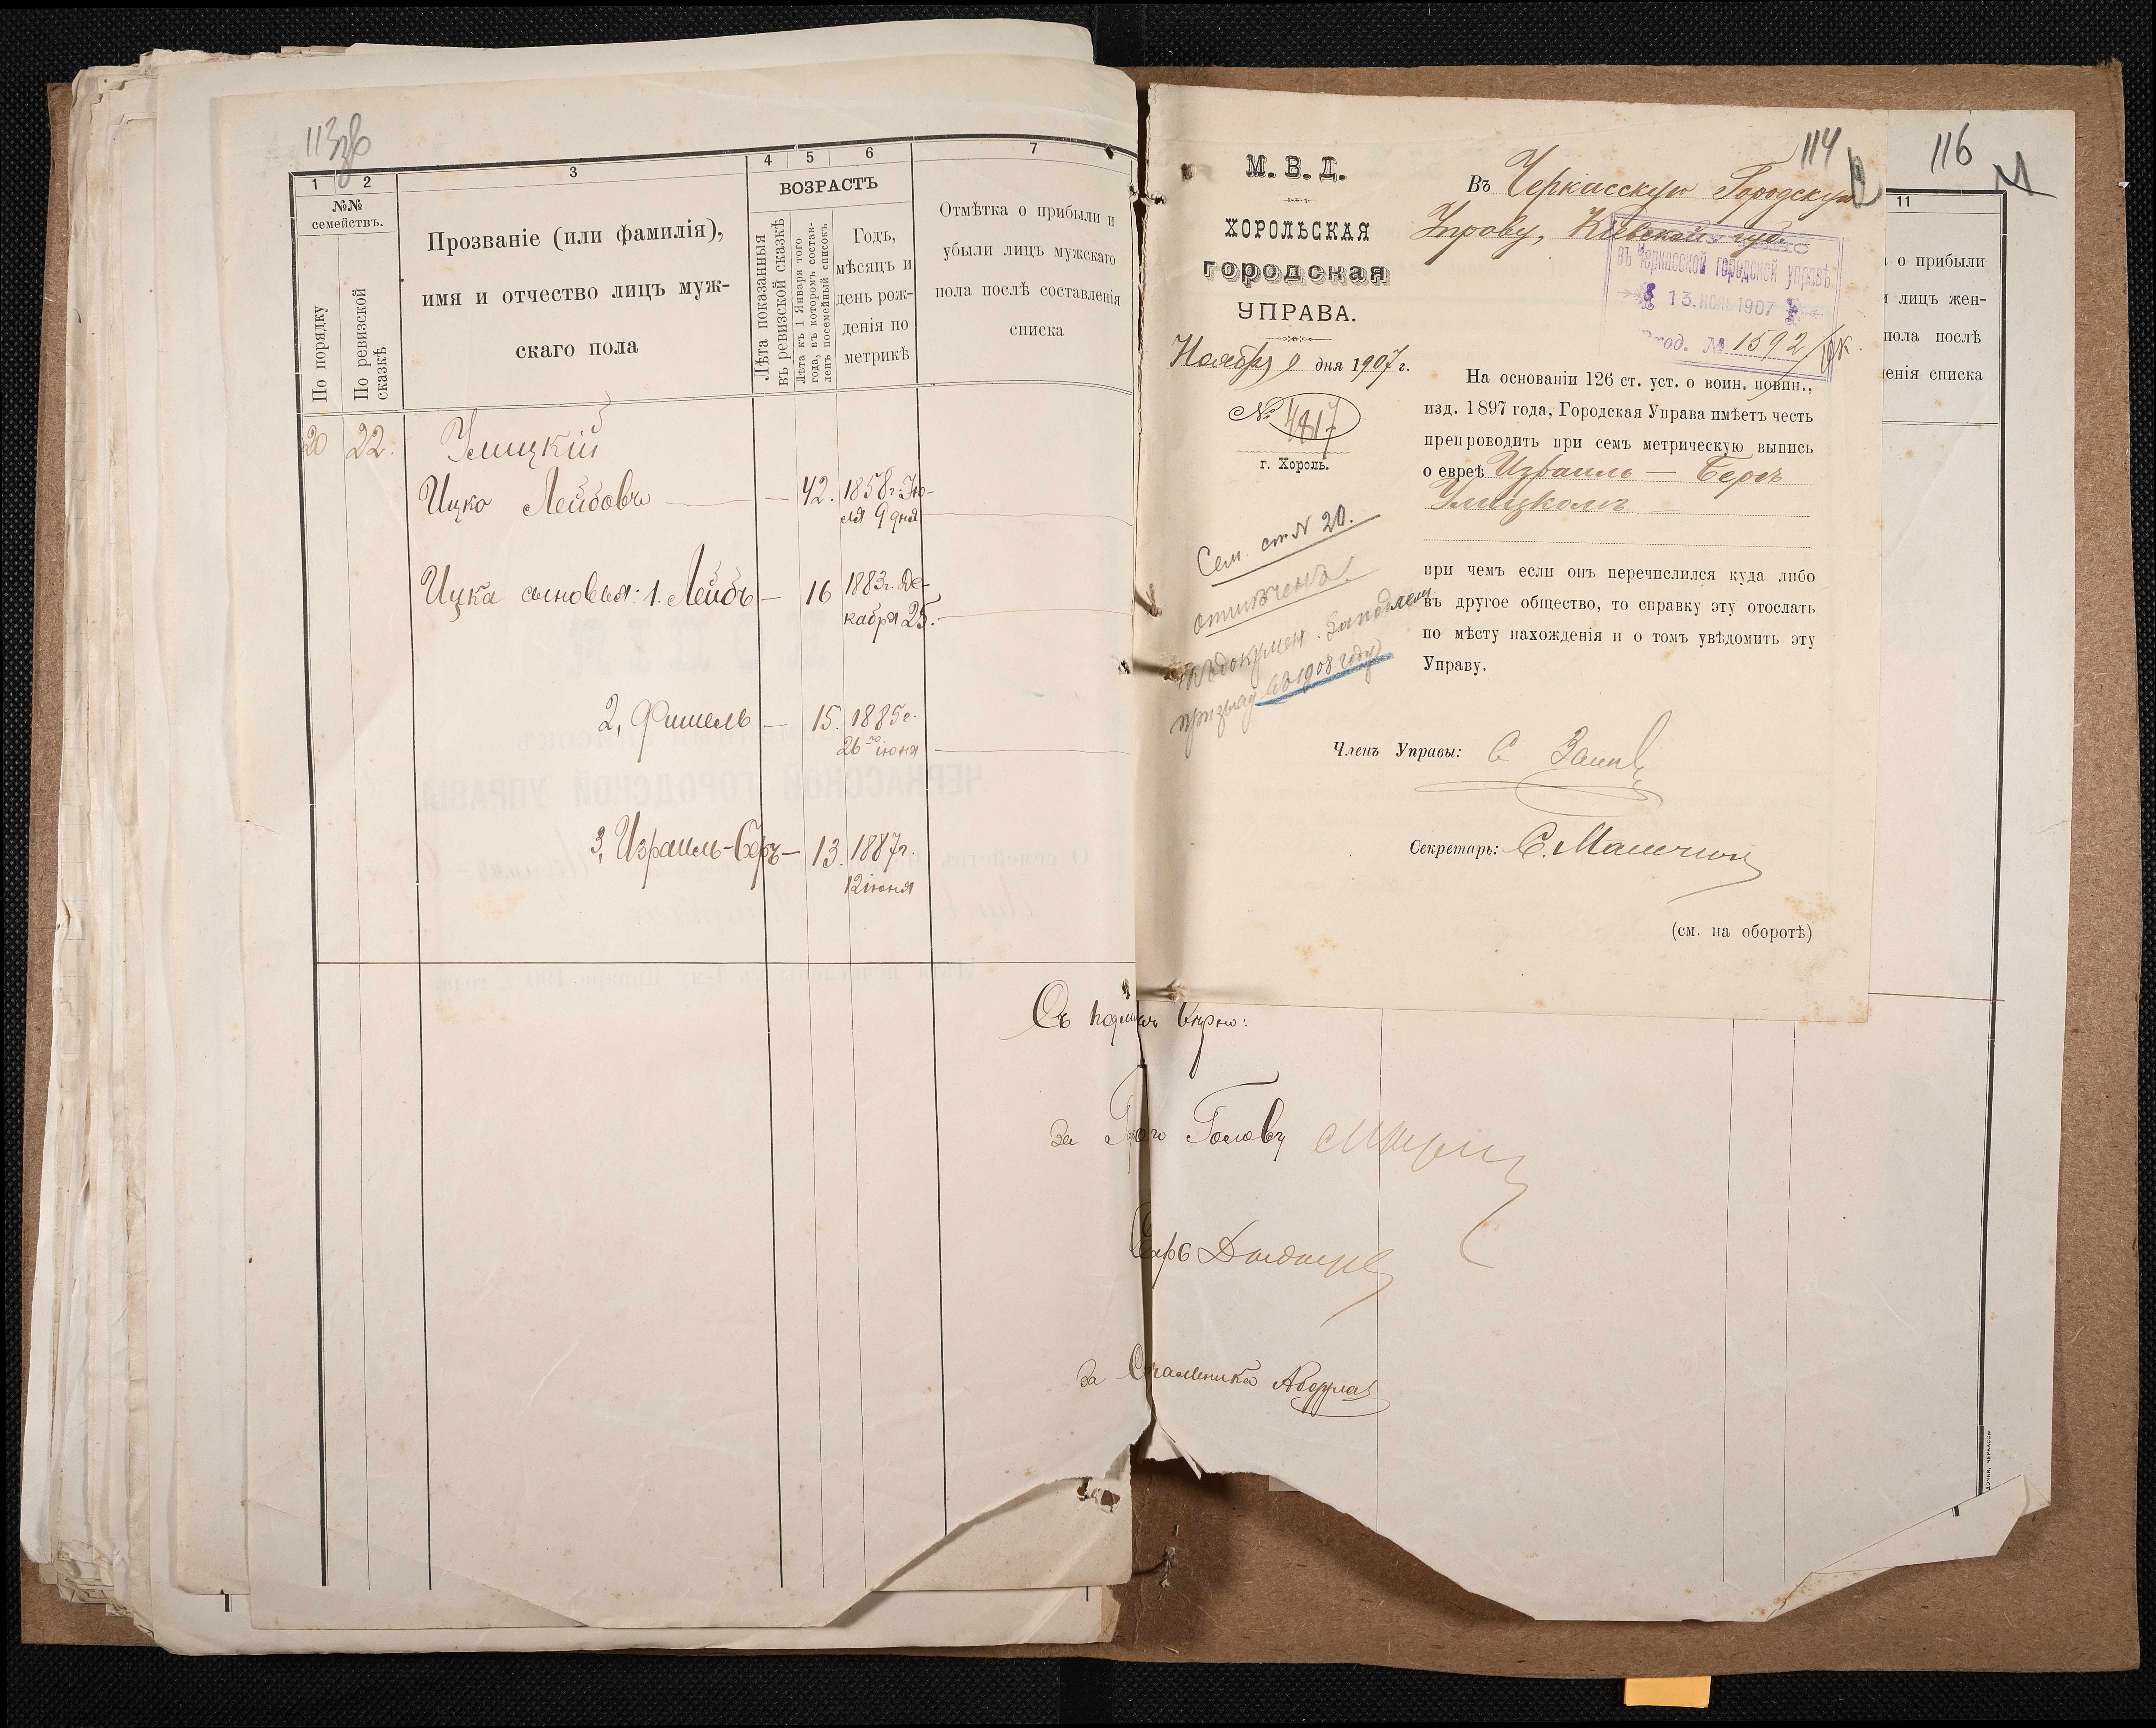 113об
1
2
3
4
5
6
7
№№
семействъ.
По порядку
По ревизской
сказкѣ
Прозваніе (или фамилія),
имя и отчество лицъ муж-
скаго пола
ВОЗРАСТЪ
Лѣта показанныя
въ ревизской сказкѣ
Лѣта къ 1 Января того
года, въ которомъ состав-
ленъ посемейный списокъ
Годъ,
мѣсяцъ и
день рож-
денія по
метрикѣ
Отмѣтка о прибыли и
убыли лицъ мужскаго
пола послѣ составленія
списка
20 22. Улицкій
Ицко Лейбовъ — 42. 1858г. Ію-
ля 9 дня
Ицка сыновья: 1. Лейбъ — 16 1883г. Де-
кабря 25.
2, Фишель — 15. 1885г.
26го іюня
3, Израиль-Беръ — 13. 1887г.
12 іюня
Съ подлин вѣрно:
за Гор го Голову
Секр
за
114
М. В. Д.
ХОРОЛЬСКАЯ
городская
УПРАВА.
Ноября 9 дня 1907 г.
№ 4817
г. Хороль.
Въ Черкасскую Городскую
Управу, Кіевской губ.
въ Черкасской городской управѣ.
13. НОЯБ 1907
Вход. № 1592
На основаніи 126 ст. уст. о воин. повин.,
изд. 1897 года, Городская Управа имѣетъ честь
препроводить при семъ метрическую выпись
о евреѣ Израиль — Беръ
Улицкомъ
при чемъ если онъ перечислился куда либо
въ другое общество, то справку эту отослать
по мѣсту нахожденія и о томъ увѣдомить эту
Управу.
Сем. сп. N 20.
отмѣчено
призыву въ 1908 году
Членъ Управы:
Секретарь:
(см. на оборотѣ)
116
11
о прибыли
лицъ жен-
пола послѣ
енія списка